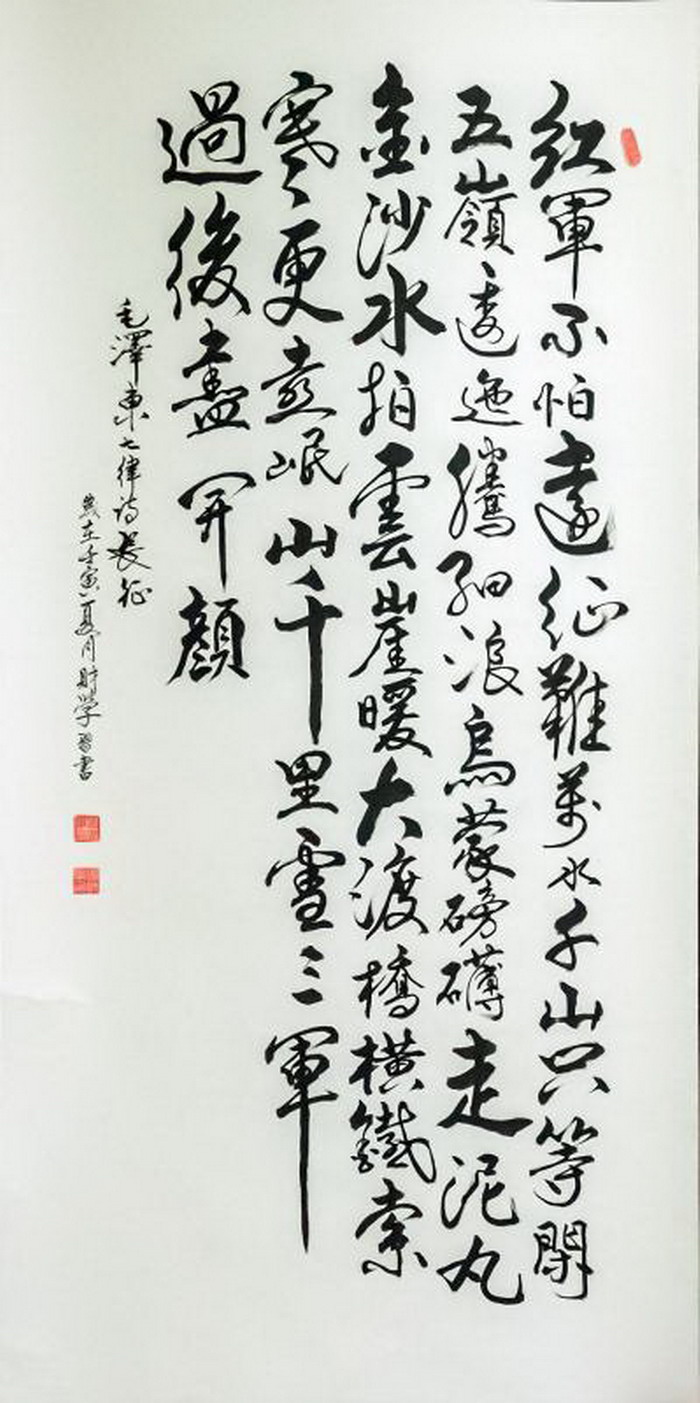 紅軍不怕遠征難萬水千山只等閑
五嶺逶迤騰細浪烏蒙磅礴走泥丸
金沙水拍雲崖暖大渡橋橫鐵索
寒更喜岷山千里雪三軍
過後盡開顏
毛澤東七律詩長征
歲在壬寅夏月